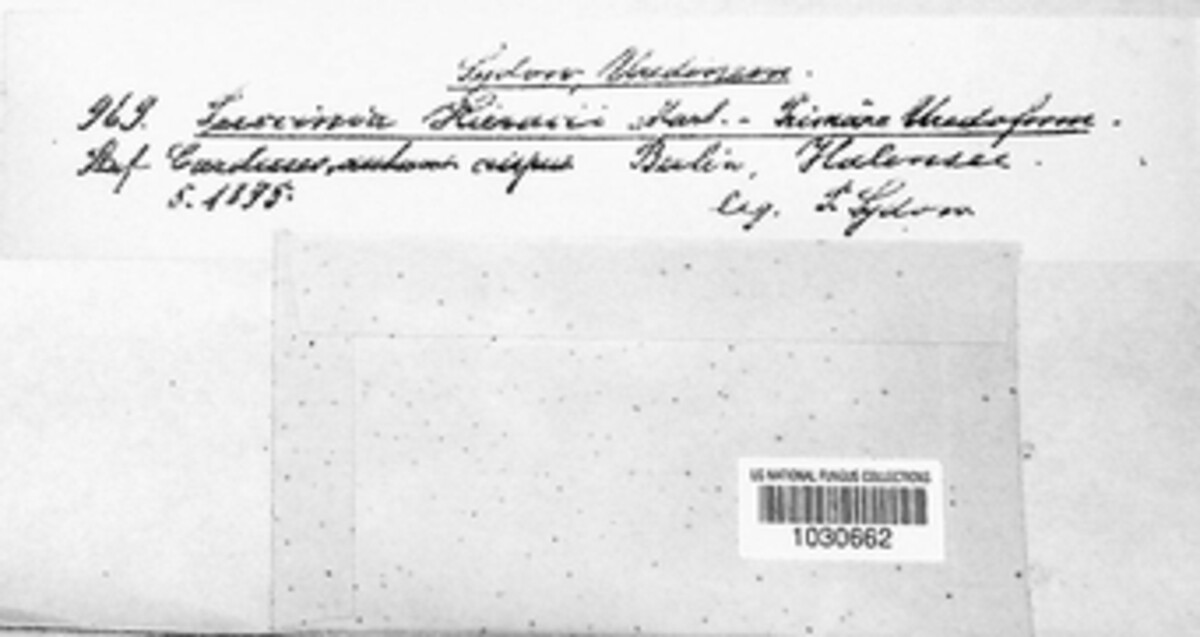 Sydow, Uredineen.
969. Puccinia Hieracii Mart. - Primäre Uredoform.
Auf Carduus crispus Berlin, Halensee.
5. 1895.
leg. P. Sydow
US NATIONAL FUNGUS COLLECTIONS
1030662